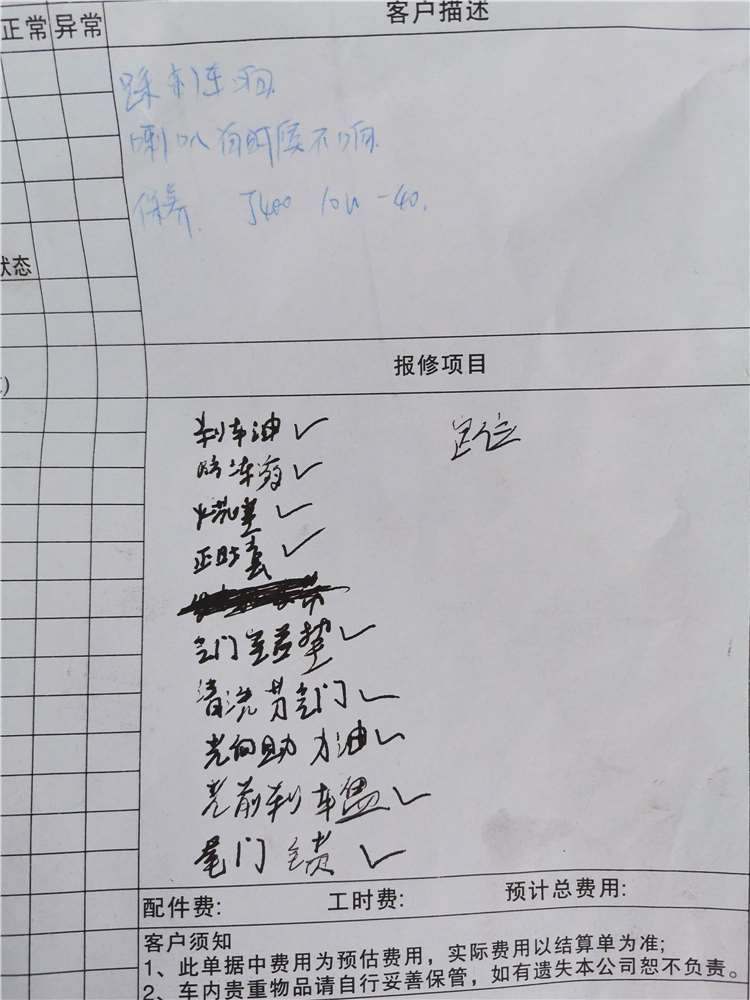 正常 异常 客户描述
踩刹车响
喇叭有时候不响
保养 J400 10W-40.
状态
报修项目
刹车油 ✓ 定位
防冻液 ✓
火花塞 ✓
正时套 ✓
气门室盖垫 ✓
清洗节气门 ✓
方向助力油 ✓
前刹车盘 ✓
尾门 ✓
配件费: 工时费: 预计总费用:
客户须知
1、此单据中费用为预估费用，实际费用以结算单为准;
2、车内贵重物品请自行妥善保管，如有遗失本公司恕不负责。